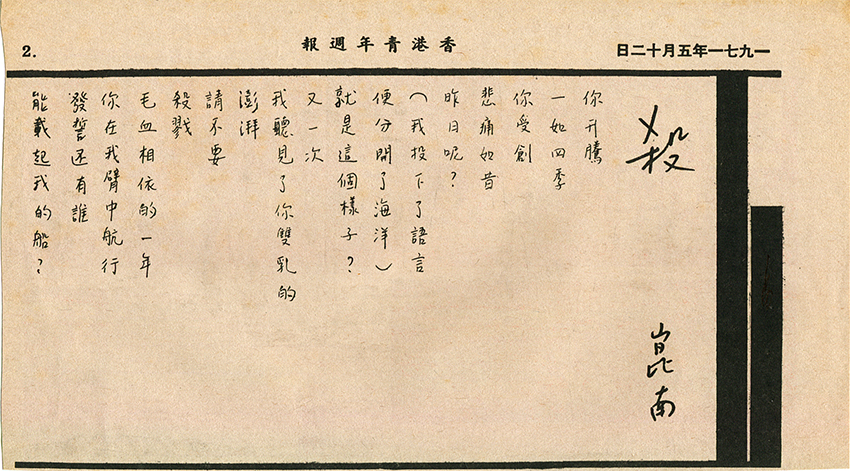 一九七一年五月十二日
香港青年週報
2.
殺
崑南
你升騰
一如四季
你受創
悲痛如昔
昨日呢？
（我投下了語言
便分開了海洋）
就是這個樣子？
又一次
我聽見了你雙乳的
澎湃
請不要
殺戮
毛血相依的一年
你在我臂中航行
發誓還有誰
能載起我的船？